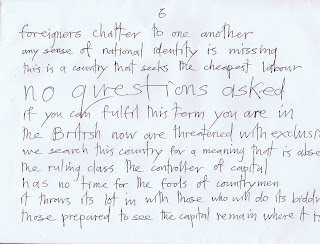 8
foreigners chatter to one another
any sense of national identity is missing
this is a country that seeks the cheapest labour
no questions asked
if you can fulfil this form you are in
the British now are threatened with exclusi
we search this country for a meaning that is abse
the ruling class the controller of capital
has no time for the fools of countrymen
it throws its lot in with those who will do its biddi
those prepared to see the capital remain where it is